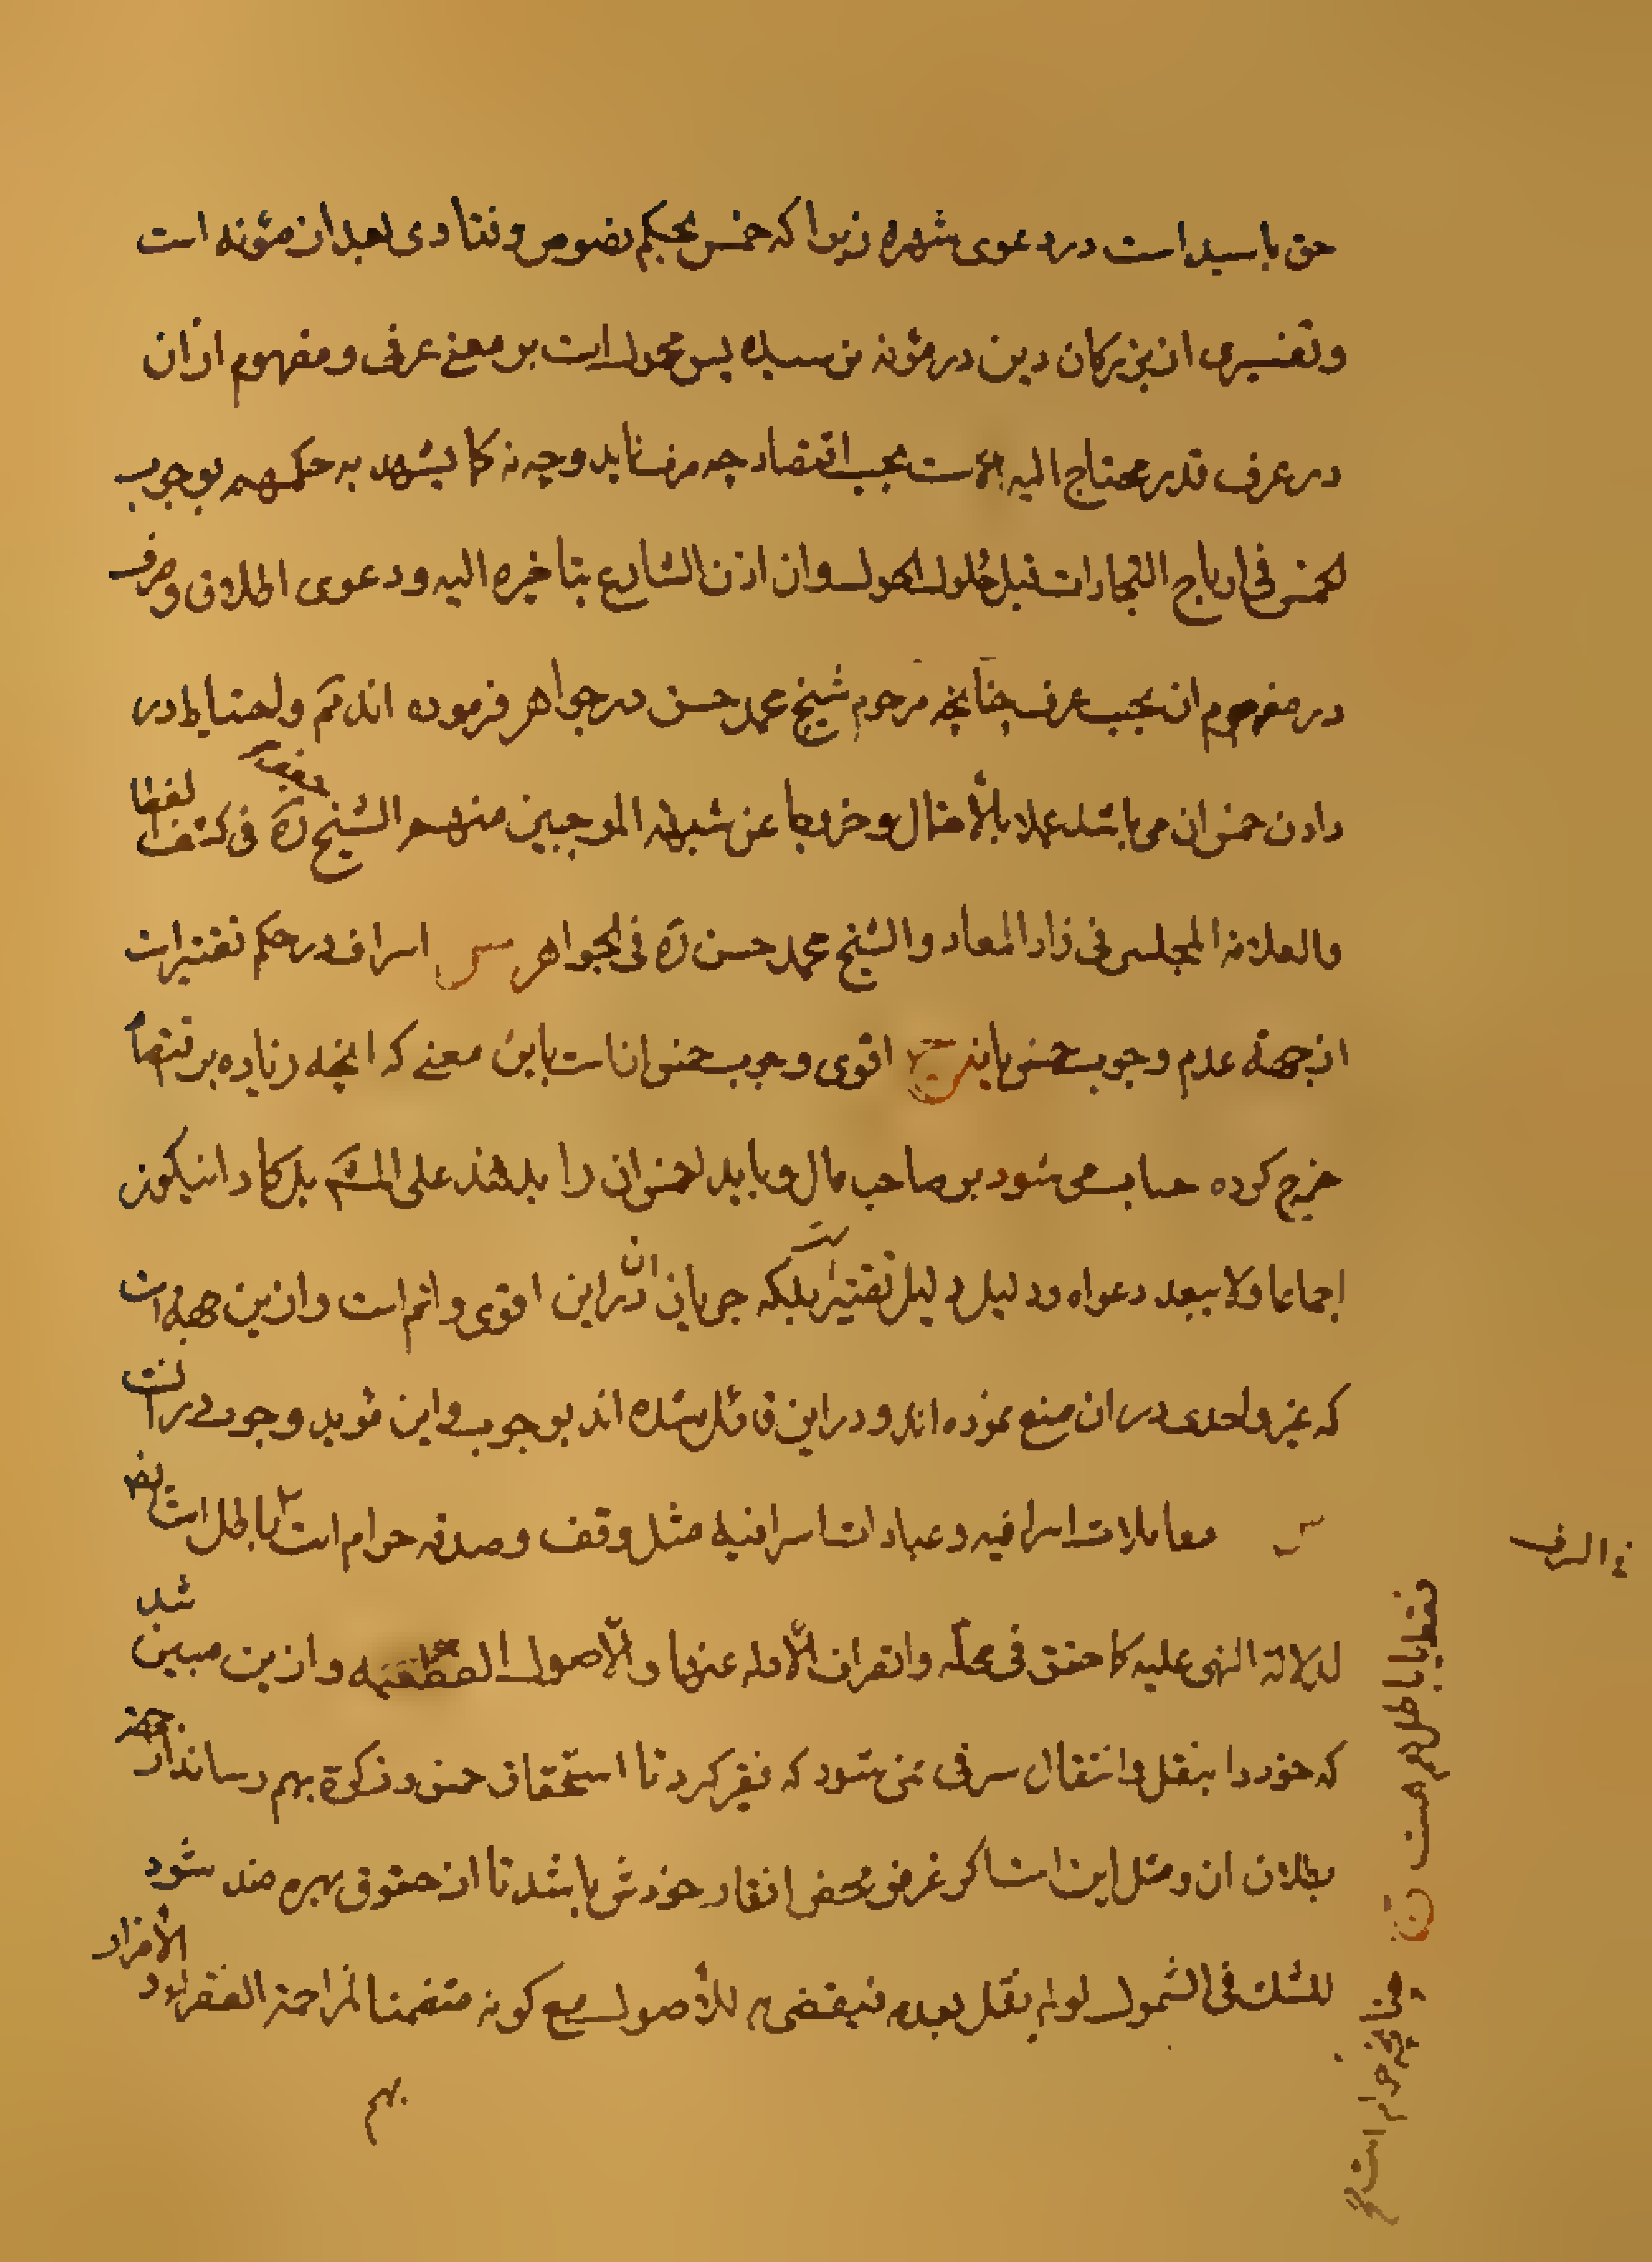 حق با سید است در دعوی شهره زیرا که خمس بحکم نصوص و فتاوی بعد از مؤنه است
و تفسیری از بزرکان دین در مؤنه نرسیده پس محمول است بر معنی عرفی و مفهوم از ان
در عرف قدر محتاج الیه است بحسب اقتصاد چه مرفا ید و چه نه کما یشهد به حکمهم بوجوب
الخمس فی ارباح التجارات قبل حلول الحول وان اذن الشارع بتاخیره الیه و دعوی اطلاق و صرف
در مفهوم ان بحسب عرف چنانچه مرحوم شیخ محمد حسن در جواهر فرموده اند نم و احتیاط در
دادن خمس ان می باشد عملا بالأمثال و خروجا عن شبهة الموجبین منهم الشیخ ره فی کشف الغطا
والعلامة المجلسی فی زاد المعاد والشیخ محمد حسن ره فی الجواهر س اسراف در حکم تقتیر است
از جهة عدم وجوب خمس یا نه ج اقوی وجوب خمس ان است باین معنی که انچه زیاده بر اقتصاد
خرج کرده حساب می شود بر صاحب مال و باید خمس ان را بدهد علی المشهم بل کاد ان یکون
اجماعا ولا یبعد دعواه و دلیل دلیل تقتیر است بلکه جریان ان در این اقوی و اتم است و ازین جهة است
که غیر واحدی در ان منع نموده اند و در این قائل شده اند بوجوب و این مؤید وجوب در ان است
س معاملات اسرافیه و عبادات اسرافیه مثل وقف و صدقه حرام است یا باطل است نیز
لدلالة النهی علیه کما حقق فی محله وانصراف الأدله عنها والأصول القطعیه و ازین مبین شد
که خود را بنقل و انتقال سرفی نمی شود که فقیر کرد تا استحقاق خمس و زکوة بهم رساند از جهة
بطلان ان و مثل این است اکر غرض محض افقار خودش باشد تا از حقوق بهره مند شود
للشک فی الشمول لو لم نقل بعدم فیقضی للأصول مع کونه متضمنا لمزاحمة الفقراء
بهم
فقط یا باطل هم هست ج
چنانچه حرام است